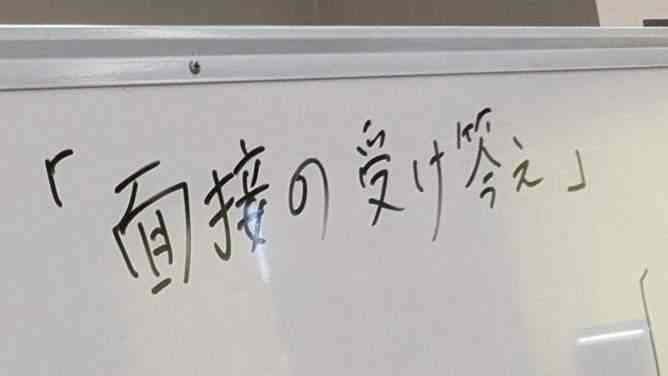 「面接の受け答え」